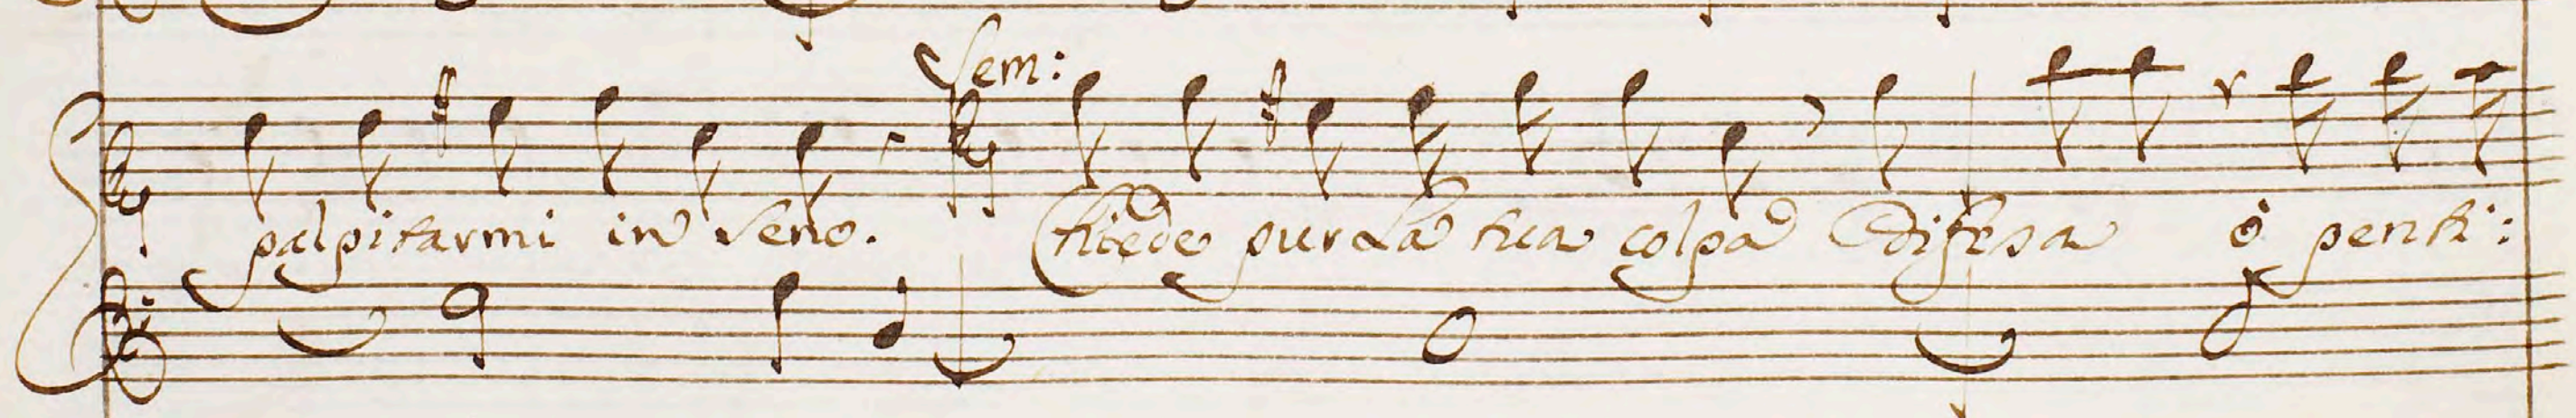 Sem:
palpitarmi in seno. Chiede pur la tua colpa Difesa ò penti: